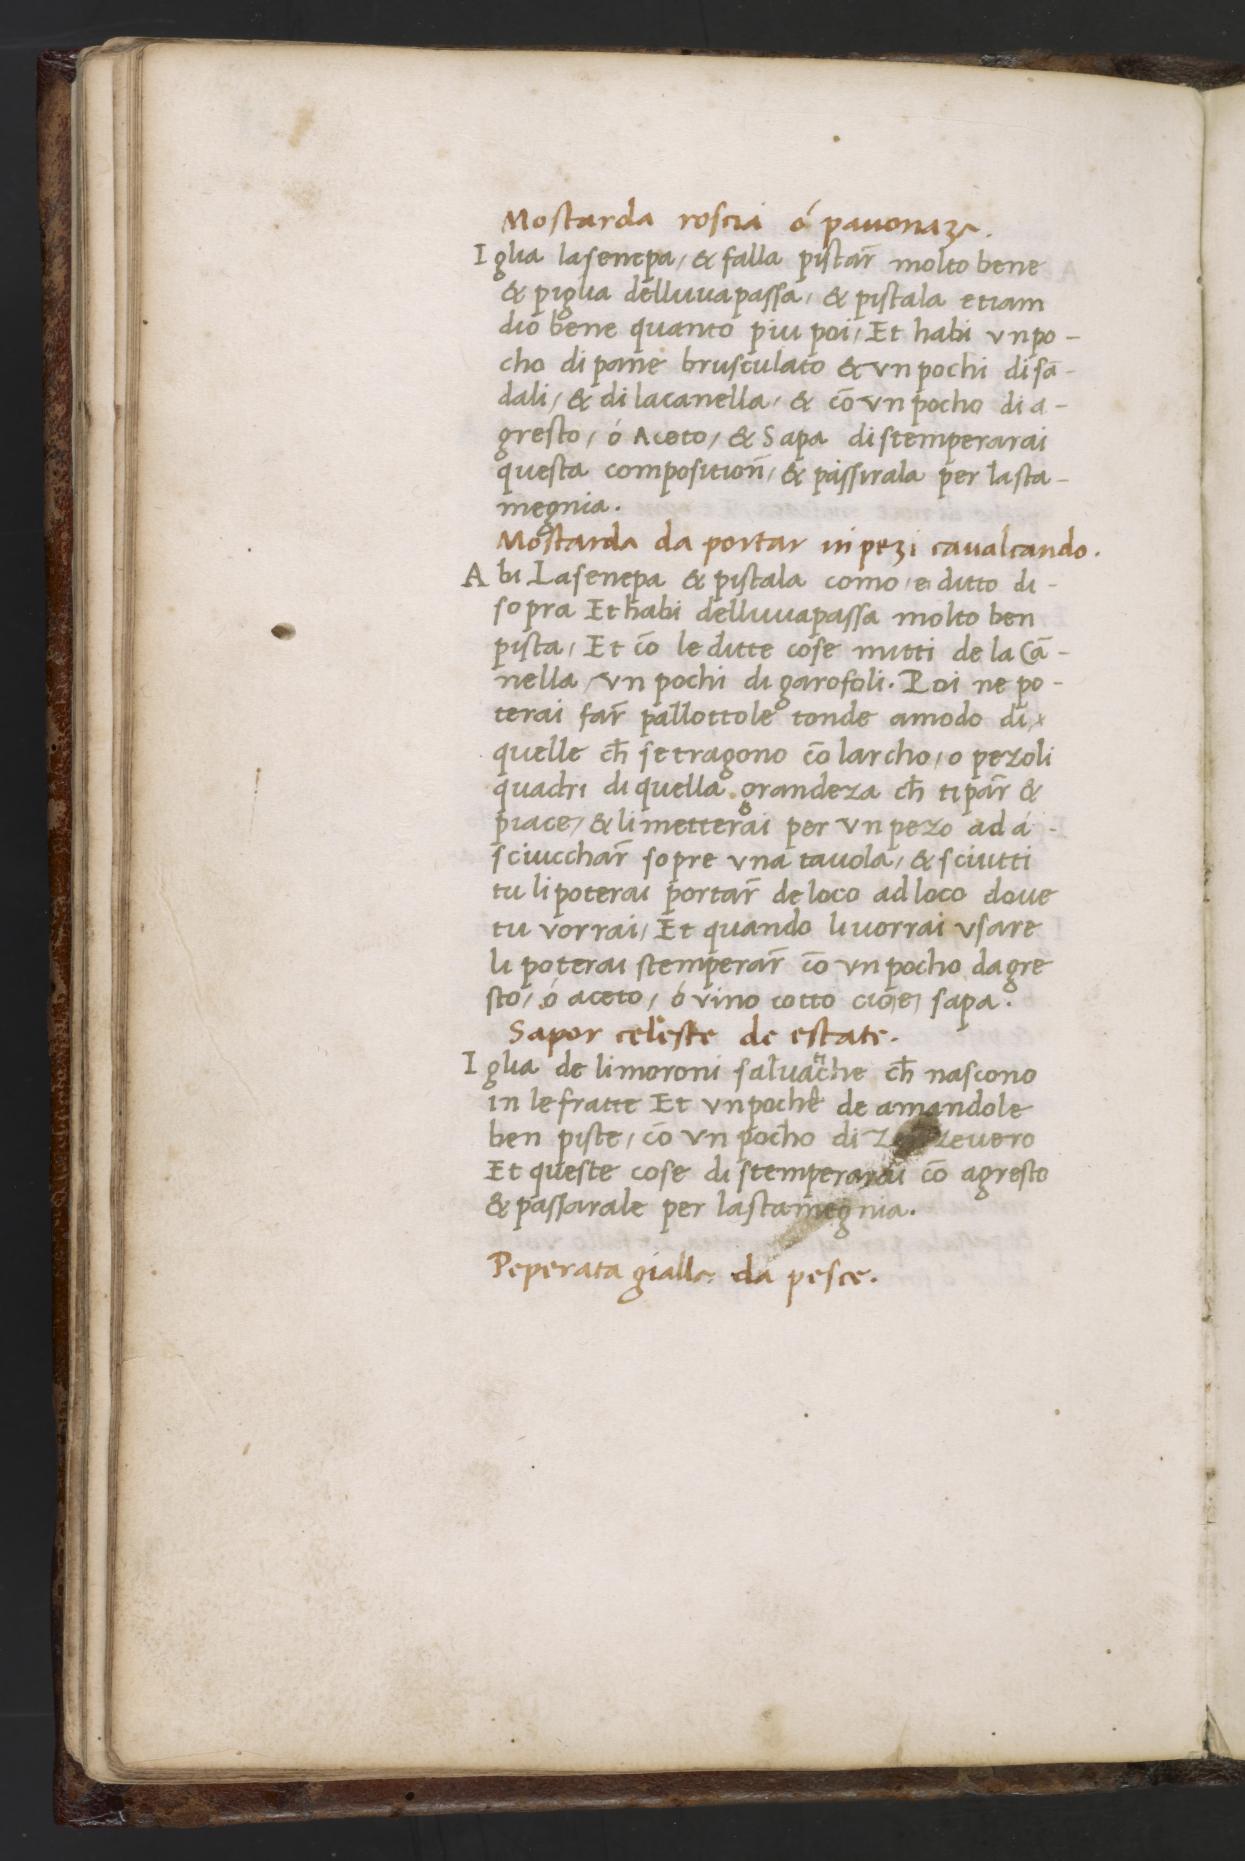 Mostarda roscia ó pauonaza.
Iglia lasenepa, & falla pistar̄ molto bene
& piglia delluuapassa, & pistala etiam
dio bene quanto piu poi, Et habi vnpo-
cho di pane brusculato & vn pochi di sā-
dali, & di lacanella, & cō vn pocho di a-
gresto, ó Aceto, & Sapa distemperarai
questa composition̄, & passirala per lasta-
megnia.
Mostarda da portar in pezi caualcando.
Abi Lasenepa & pistala como e ditto di-
sopra Et habi delluuapassa molto ben
pista, Et cō le ditte cose mitti de la Cā-
nella, vn pochi di garofoli. Poi ne po-
terai far̄ pallottole tonde amodo di
quelle ch̄ se tragono cō larcho, o pezoli
quadri di quella grandeza ch̄ ti par̄ &
piace, & li metterai per vn pezo ad á-
sciucchar̄ sopre vna tauola, & sciutti
tu li poterai portar̄ de loco ad loco doue
tu vorrai, Et quando li uorrai vsare
li poterai stemperar̄ cō vn pocho dagre
sto, ó aceto, ó vino cotto cioe, sapa.
Sapor celeste de estate.
Iglia de li moroni saluatiche ch̄ nascono
in le fratte Et vn poche de amandole
ben piste, cō vn pocho di zenzeuero
Et queste cose distemperarai cō agresto
& passarale per lastamegnia.
Peperata gialla da pesce.